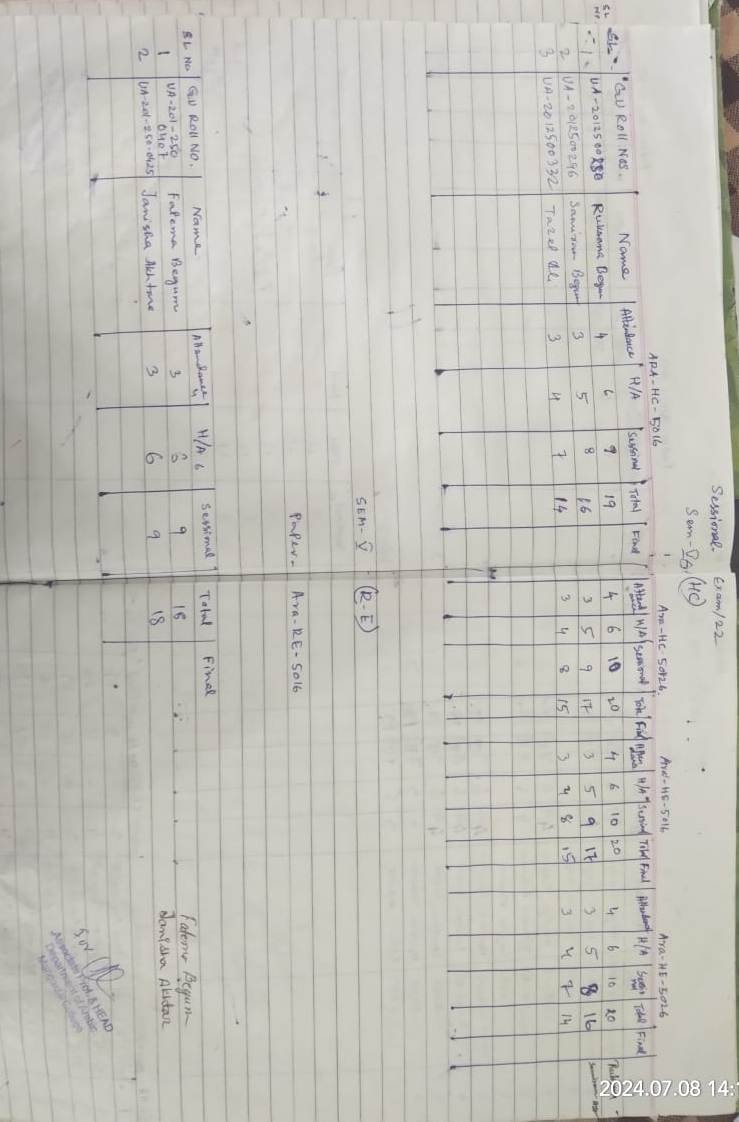 Sessional Exam/22
Sem-V (HC)
ARA-HC-5016 Ara-HC-5026 Ara-HE-5016 Ara-HE-5026
SL No. GU Roll Nos. Name Attendance H/A Sessional Total Final Attendance H/A Sessional Total Final H/A Total Final Attendance H/A Sessional Total Final
1 UA-2012500280 Ruksana Begum 4 6 9 19 4 6 10 20 4 6 10 20 4 6 10 20
2 UA-2012500296 Begum 3 5 8 16 3 5 9 17 3 5 9 17 3 5 8 16
3 UA-2012500332 3 4 7 14 3 4 8 15 3 4 8 15 3 4 7 14
SEM-V (R-E)
Paper- Ara-RE-5016
SL No GU Roll No. Name Attendance H/A 6 Sessional Total Final
1 UA-201-250 0407 Fatema Begum 3 6 9 18 Fatema Begum
2 UA-201-250-0425 Janisha Akhtar 3 6 9 18 Janisha Akhtar
Associate Prof. & HEAD
Department of Arabic
2024.07.08 14:1